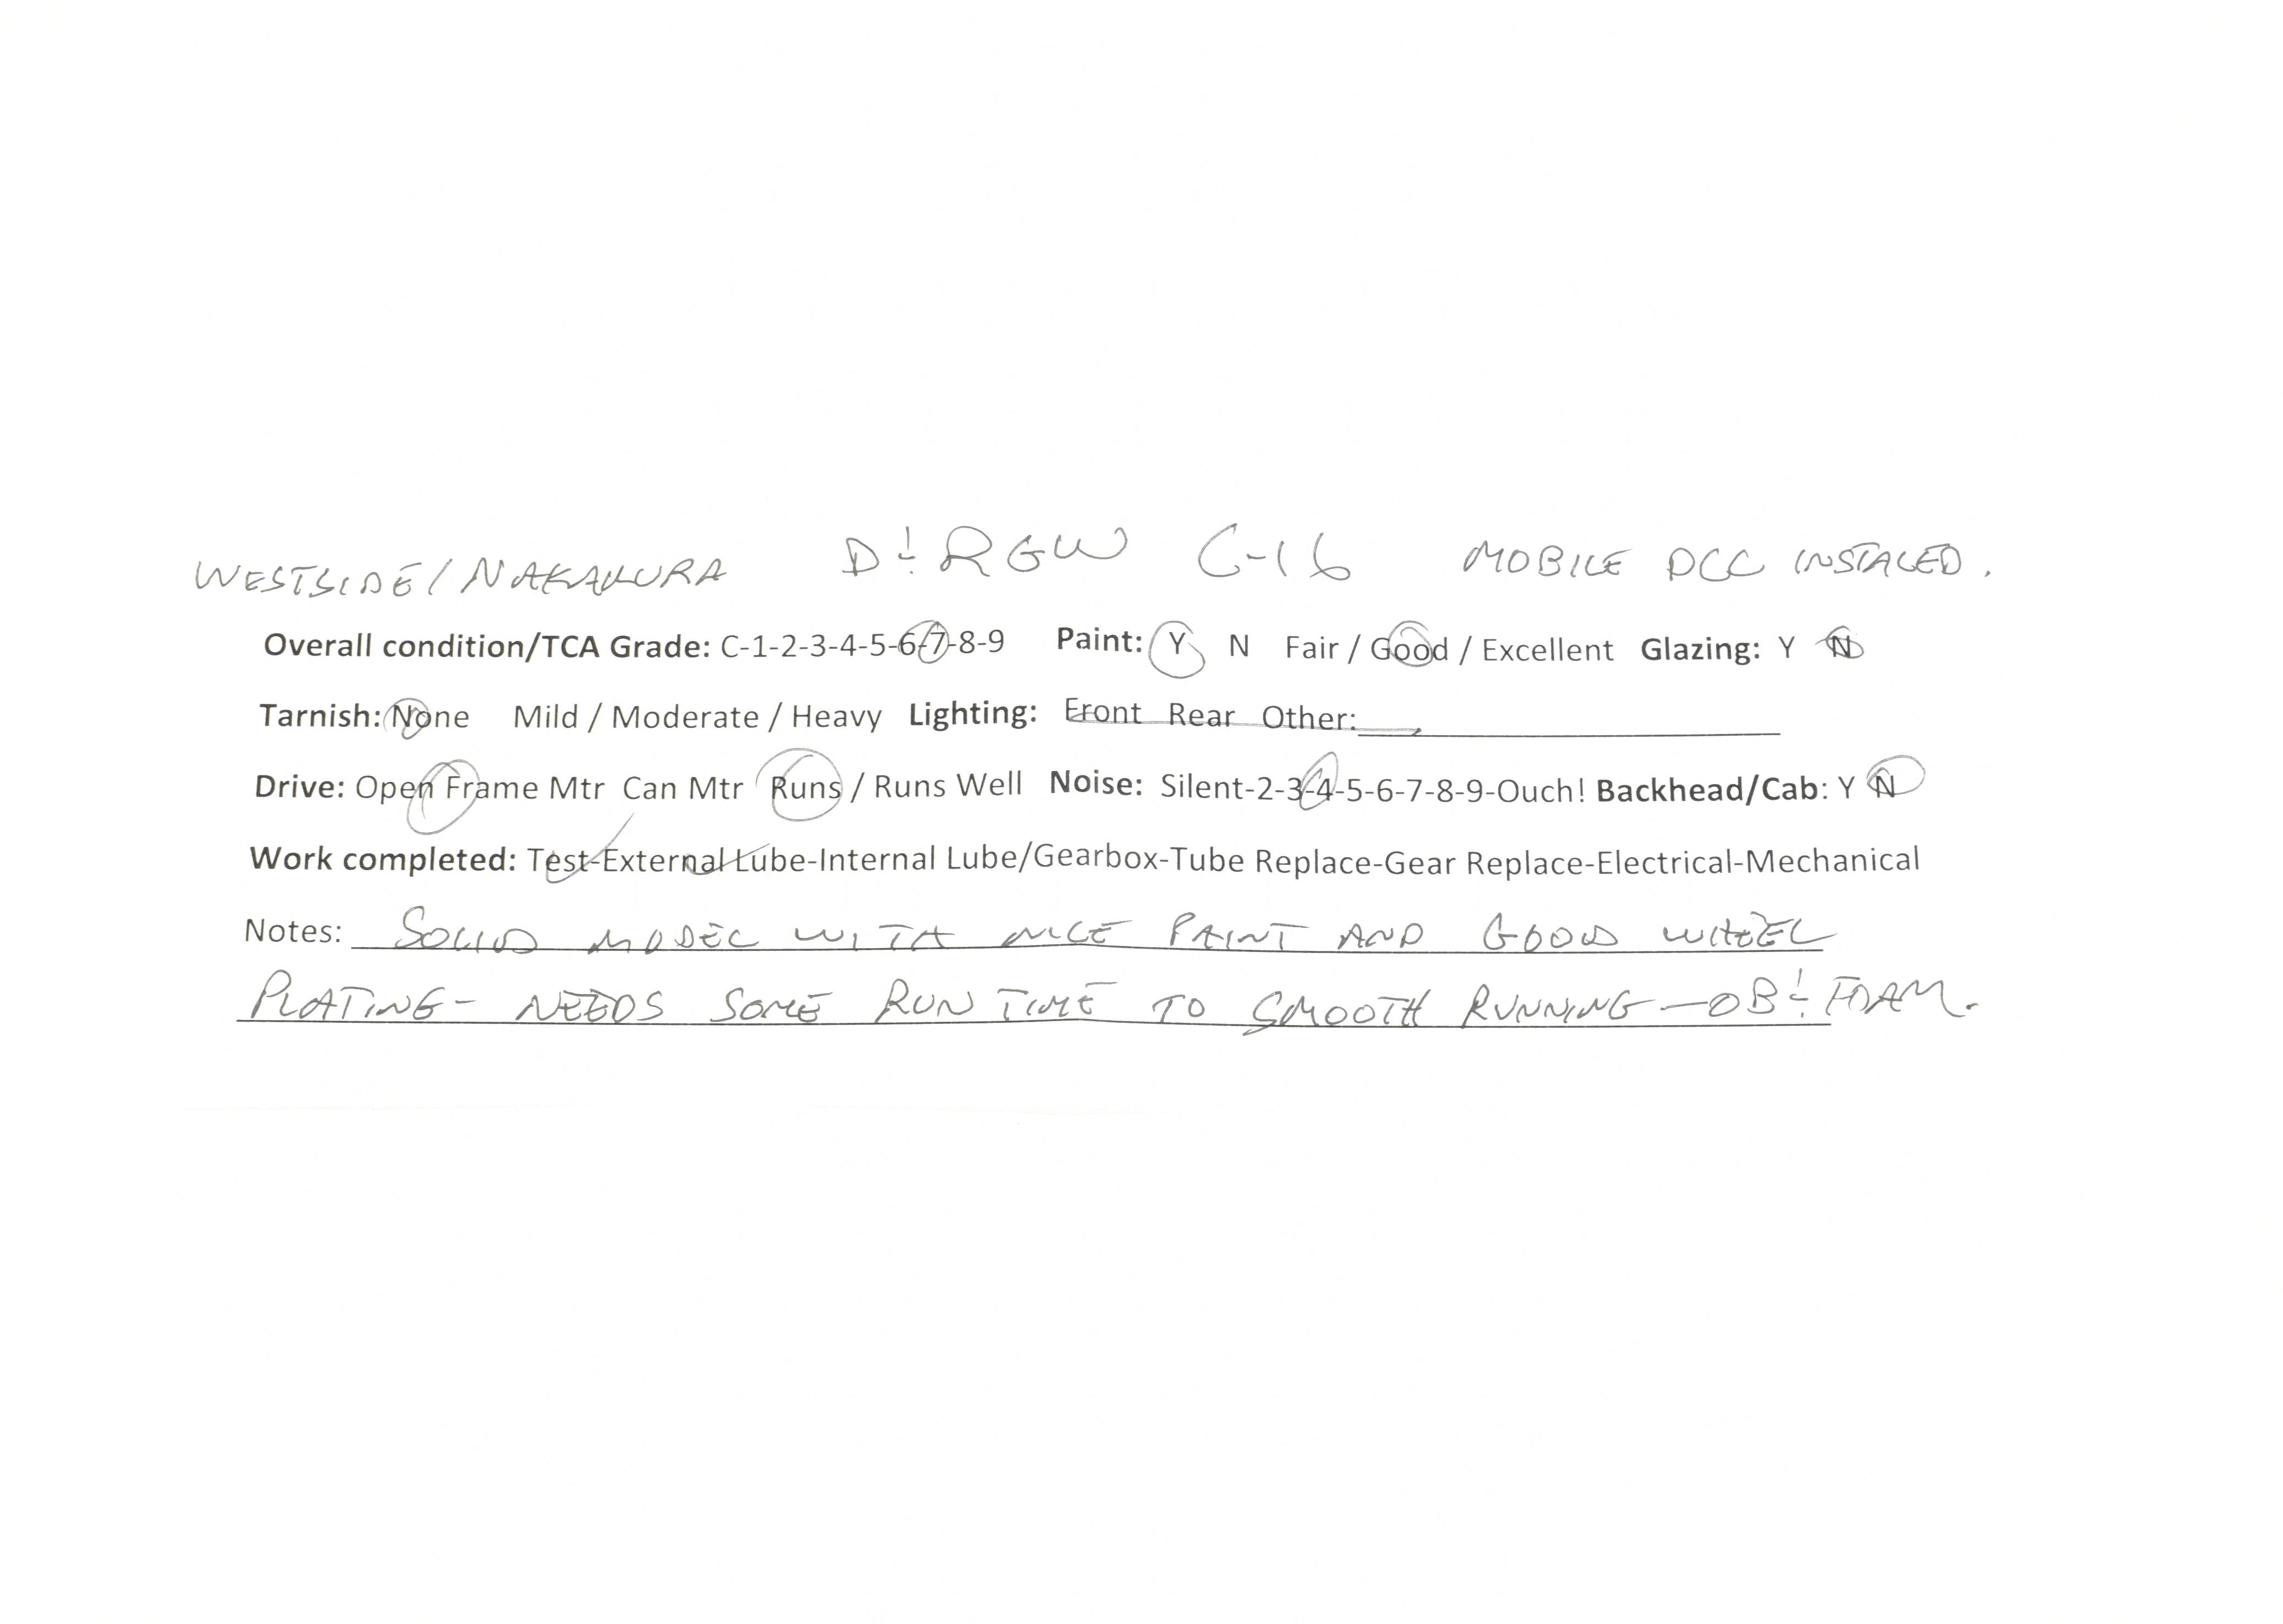 WESTSIDE/NAKAKURA D&RGW C-16 MOBILE DCC INSTALED.
Overall condition/TCA Grade: C-1-2-3-4-5-6-7-8-9 Paint: Y N Fair / Good / Excellent Glazing: Y N
Tarnish: None Mild / Moderate / Heavy Lighting: Front Rear Other:
Drive: Open Frame Mtr Can Mtr Runs / Runs Well Noise: Silent-2-3-4-5-6-7-8-9-Ouch! Backhead/Cab: Y N
Work completed: Test-External Lube-Internal Lube/Gearbox-Tube Replace-Gear Replace-Electrical-Mechanical
Notes: SOLID MODEL WITH NICE PAINT AND GOOD WHEEL
PLATING- NEEDS SOME RUN TIME TO SMOOTH RUNNING—OB & FOAM.